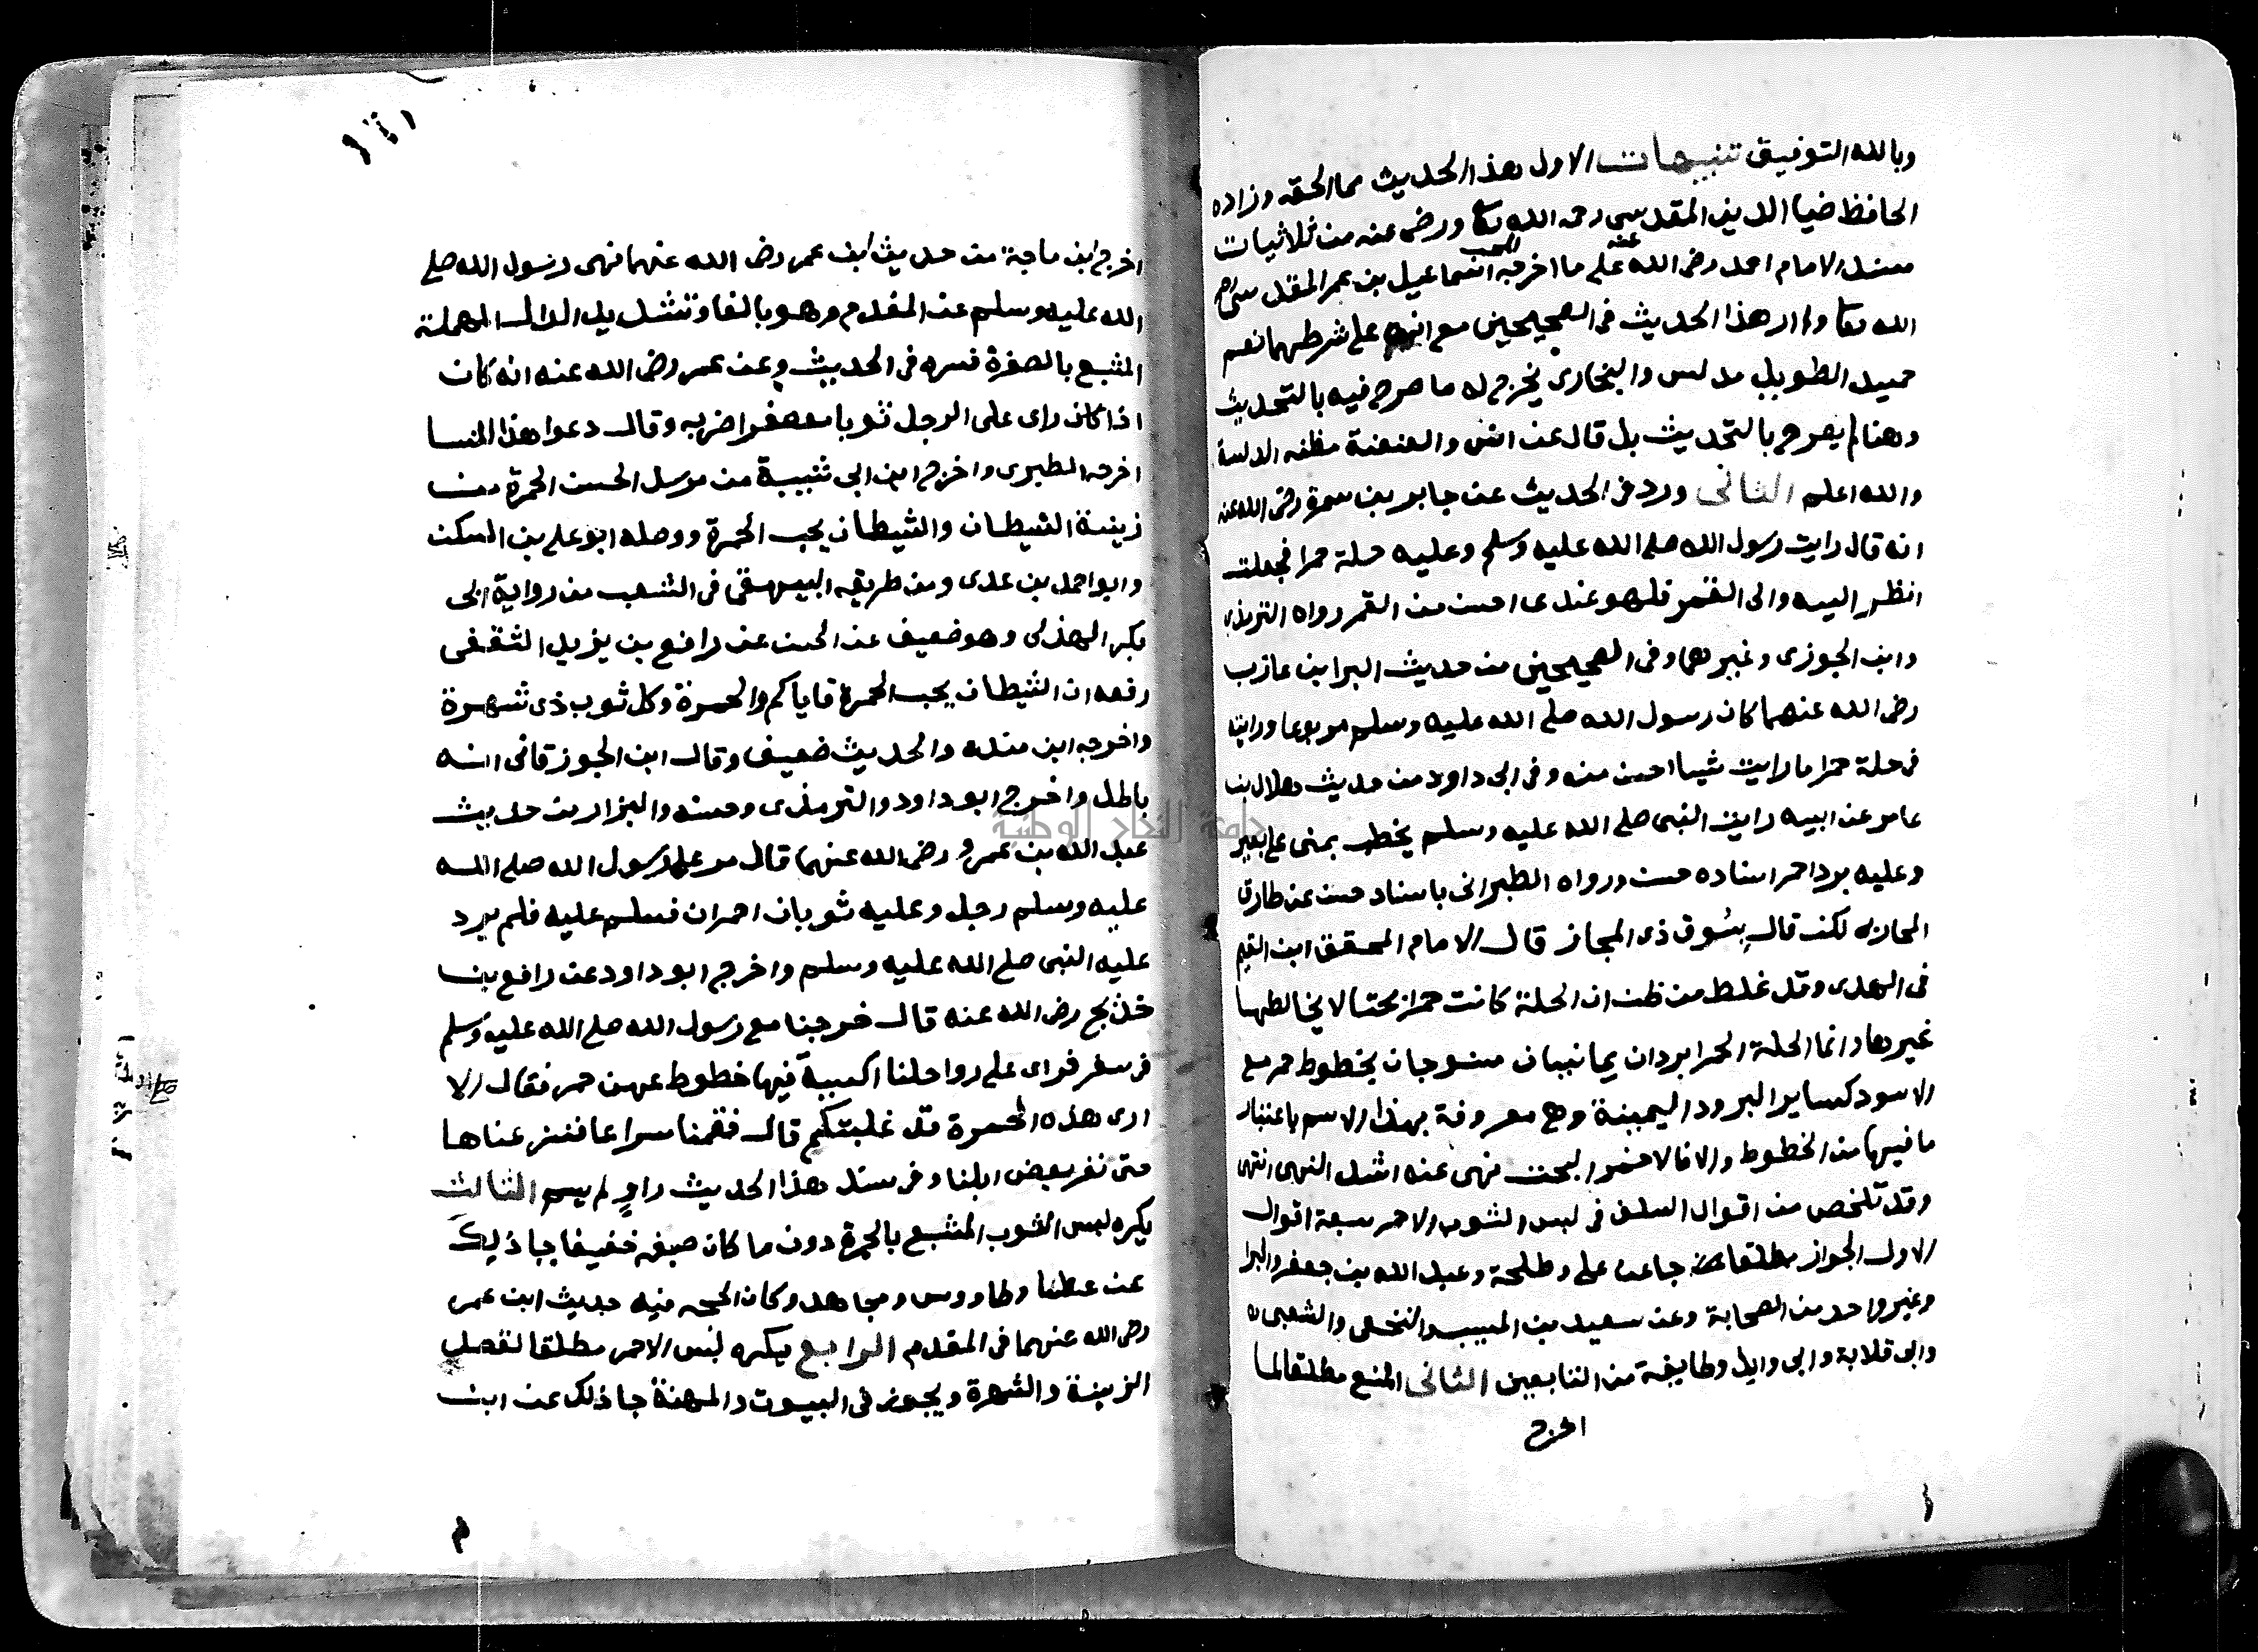 وبالله التوفيق تنبيهات الاول هذا الحديث مما الحقه وزاده
الحافظ ضيا الدين المقدسي رحمه الله تعا ورضى عنه من ثلاثيات
مسند الامام احمد رضى الله عنه على ما اخرجه المحب اسماعيل بن عمر المقدسى رحم
الله تعا ولم ار هذا الحديث فى الصحيحين مع انه على شرطهما نعم
حميد الطويل مدلس والبخارى يخرج له ما صرح فيه بالتحديث
وهنا لم يصرح بالتحديث بل قال عن انس والعنعنة مظنه الدلسة
والله اعلم الثانى ورد فى الحديث عن جابر بن سمرة رضى الله عنه
انه قال رايت رسول الله صلى الله عليه وسلم وعليه حلة حمرا فجعلت
انظر اليه والى القمر فلهو عندى احسن من القمر رواه الترمذى
وابن الجوزى وغيرهما وفى الصحيحين من حديث البرا بن عازب
رضى الله عنهما كان رسول الله صلى الله عليه وسلم مربوعا ورايته
فى حلة حمرا ما رايت شيا احسن منه وفى ابى داود من حديث هلال بن
عامر عن ابيه رايت النبى صلى الله عليه وسلم يخطب بمنى على بعير
وعليه برد احمر اسناده حسن ورواه الطبرانى باسناد حسن عن طارق
المحاربى لكن قال بسوق ذى المجاز قال الامام المحقق ابن القيم
فى الهدى وقد غلط من ظن ان الحلة كانت حمرا بحتا لا يخالطها
غيرها وانما الحلة الحمرا بردان يمانيان منسوجان بخطوط حمر مع
الاسود كساير البرود اليمينة وهى معروفة بهذا الاسم باعتبار
ما فيها من الخطوط والا فالاحمر البحت نهى عنه اشد النهى انتهى
وقد تلخص من اقوال السلف فى لبس الثوب الاحمر سبعة اقوال
الاول الجواز مطلقا جا عن على وطلحة وعبد الله بن جعفر والبرا
وغير واحد من الصحابة وعن سعيد بن المسيب والنخعى والشعبى
وابى قلابة وابى وايل وطايفة من التابعين الثانى المنع مطلقا لما
اخرج
١٣١
اخرج ابن ماجة من حديث ابن عمر رضى الله عنهما نهى رسول الله صلى
الله عليه وسلم عن المفدم وهو بالفا وتشديد الدال المهملة
المشبع بالصفرة فسره فى الحديث وعن عمر رضى الله عنه انه كان
اذا كان راى على الرجل ثوبا معصفرا ضربه وقال دعوا هذا للنسا
اخرجه الطبرى واخرج ابن ابى شيبة من مرسل الحسن الحمرة من
زينة الشيطان والشيطان يحب الحمرة ووصله ابو على بن السكن
وابو احمد بن عدى ومن طريقه البيهقى فى الشعب من رواية ابى
بكر الهذلى وهو ضعيف عن الحسن عن رافع بن يزيد الثقفى
رفعه ان الشيطان يحب الحمرة فاياكم والحمرة وكل ثوب ذى شهرة
واخرجه ابن منده والحديث ضعيف وقال ابن الجوزقانى انه
باطل واخرج ابو داود والترمذى وحسنه والبزار من حديث
عبد الله بن عمرو رضى الله عنهما قال مر على رسول الله صلى الله
عليه وسلم رجل وعليه ثوبان احمران فسلم عليه فلم يرد
عليه النبى صلى الله عليه وسلم واخرج ابو داود عن رافع بن
خديج رضى الله عنه قال خرجنا مع رسول الله صلى الله عليه وسلم
فى سفر فراى على رواحلنا اكسية فيها خطوط عهن حمر فقال الا
ارى هذه الحمرة قد غلبتكم قال فقمنا سراعا فنزعناها
حتى نفر بعض ابلنا وفى سند هذا الحديث راو لم يسم الثالث
يكره لبس الثوب المشبع بالحمرة دون ما كان صبغه خفيفا جا ذلك
عن عطا وطاووس ومجاهد وكان الحجه فيه حديث ابن عمر
رضى الله عنهما فى المقدم الرابع يكره لبس الاحمر مطلقا لقصد
الزينة والشهرة ويجوز فى البيوت والمهنة جا ذلك عن ابن
جامعة النجاح الوطنية